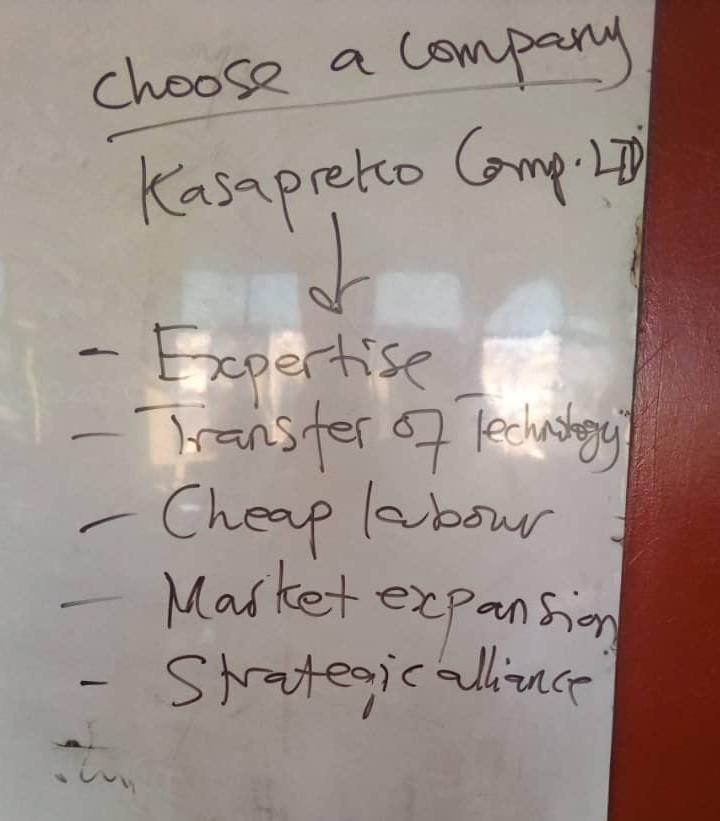 choose a company
Kasapreko Comp. LTD
- Expertise
- Transfer of Technology
- Cheap labour
- Market expansion
- Strategic alliance